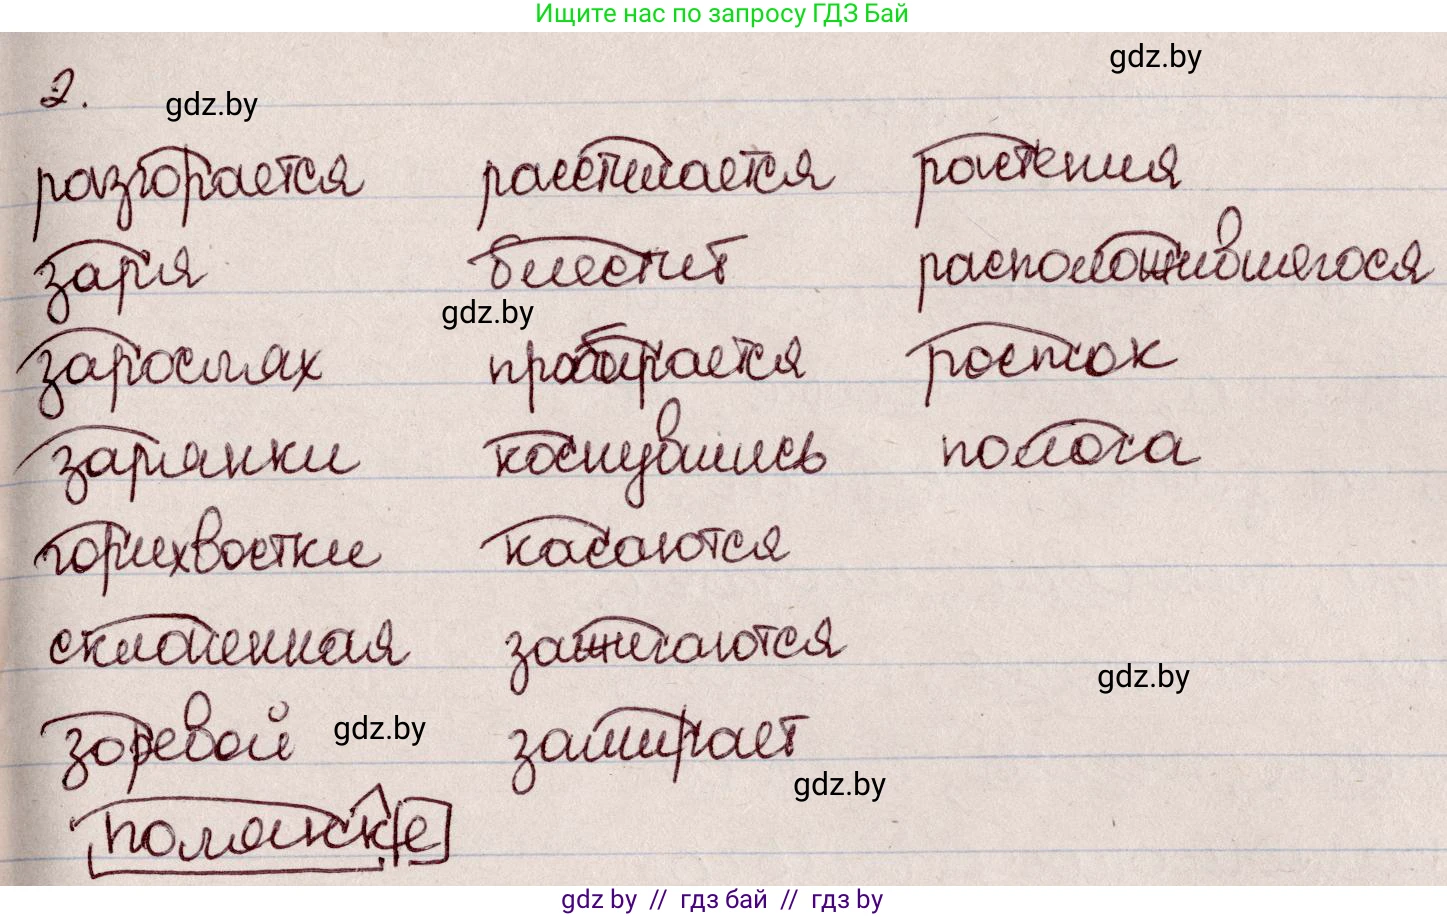 Ищите нас по запросу ГДЗ Бай
gdz.by
2.
gdz.by
разгорается расстилается растения
заря блестит расположившегося
gdz.by
зарослях пробирается росток
зарянки коснувшись полога
горихвостки касаются
склоненная зажигаются
gdz.by
зоревой gdz.by замирает
gdz.by
полянке
gdz by // гдз бай // гдз by